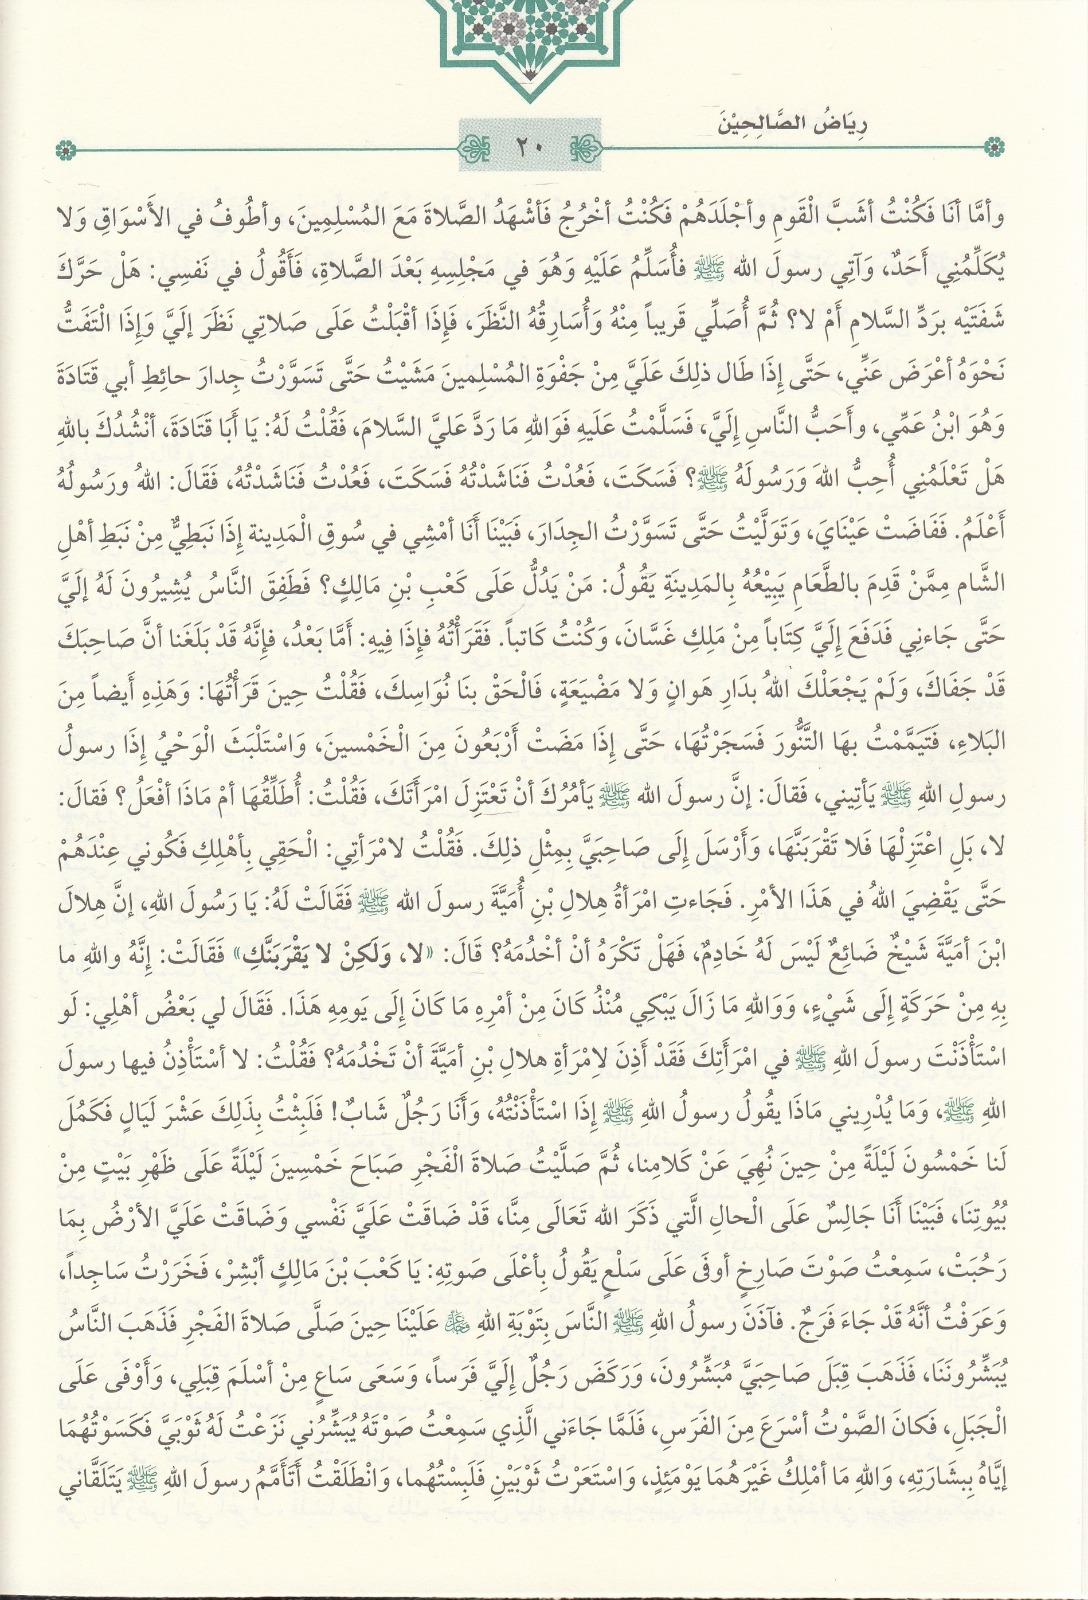 رِيَاضُ الصَّالِحِيْنَ
٢٠
وأمَّا أنَا فَكُنْتُ أشَبَّ الْقَومِ وأجْلَدَهُمْ فَكُنْتُ أخْرُجُ فَأشْهَدُ الصَّلاةَ مَعَ المُسْلِمِينَ، وأطُوفُ في الأَسْوَاقِ وَلا
يُكَلِّمُنِي أَحَدٌ، وَآتِي رسولَ الله ﷺ فأُسَلِّمُ عَلَيْهِ وَهُوَ في مَجْلِسِهِ بَعْدَ الصَّلاةِ، فَأَقُولُ في نَفسِي: هَلْ حَرَّكَ
شَفَتَيْه برَدِّ السَّلامِ أَمْ لا؟ ثُمَّ أُصَلِّي قَريباً مِنْهُ وَأُسَارِقُهُ النَّظَرَ، فَإِذَا أقْبَلْتُ عَلَى صَلاتِي نَظَرَ إلَيَّ وَإِذَا الْتَفَتُّ
نَحْوَهُ أعْرَضَ عَنِّي، حَتَّى إذَا طَال ذلِكَ عَلَيَّ مِنْ جَفْوَةِ المُسْلِمينَ مَشَيْتُ حَتَّى تَسَوَّرْتُ جِدارَ حائِطِ أبي قَتَادَةَ
وَهُوَ ابْنُ عَمِّي، وأَحَبُّ النَّاسِ إِلَيَّ، فَسَلَّمْتُ عَلَيهِ فَوَاللهِ مَا رَدَّ عَليَّ السَّلامَ، فَقُلْتُ لَهُ: يَا أَبَا قَتَادَةَ، أنْشُدُكَ باللهِ
هَلْ تَعْلَمُنِي أُحِبُّ اللهَ وَرَسُولَهُ ﷺ؟ فَسَكَتَ، فَعُدْتُ فَنَاشَدْتُهُ فَسَكَتَ، فَعُدْتُ فَنَاشَدْتُهُ، فَقَالَ: اللهُ ورَسُولُهُ
أَعْلَمُ. فَفَاضَتْ عَيْنَايَ، وَتَوَلَّيْتُ حَتَّى تَسَوَّرْتُ الجِدَارَ، فَبَيْنَا أَنَا أمْشِي في سُوقِ الْمَدِينة إِذَا نَبَطِيٌّ مِنْ نَبَطِ أهْلِ
الشَّام مِمَّنْ قَدِمَ بالطَّعَامِ يَبِيْعُهُ بِالمَدِينَةِ يَقُولُ: مَنْ يَدُلُّ عَلَى كَعْبِ بْنِ مَالِكٍ؟ فَطَفِقَ النَّاسُ يُشِيرُونَ لَهُ إلَيَّ
حَتَّى جَاءنِي فَدَفَعَ إِلَيَّ كِتَاباً مِنْ مَلِكِ غَسَّانَ، وَكُنْتُ كَاتباً. فَقَرَأْتُهُ فإِذَا فِيهِ: أَمَّا بَعْدُ، فإِنَّهُ قَدْ بَلَغَنا أنَّ صَاحِبَكَ
قَدْ جَفَاكَ، وَلَمْ يَجْعَلْكَ اللهُ بدَارِ هَوانٍ وَلا مَضْيَعَةٍ، فَالْحَقْ بنَا نُوَاسِكَ، فَقُلْتُ حِينَ قَرَأْتُهَا: وَهَذِهِ أَيضاً مِنَ
البَلاءِ، فَتَيَمَّمْتُ بهَا التَّنُّورَ فَسَجَرْتُهَا، حَتَّى إِذَا مَضَتْ أَرْبَعُونَ مِنَ الْخَمْسينَ، وَاسْتَلْبَثَ الْوَحْيُ إِذَا رسولُ
رسولِ اللهِ ﷺ يَأتِيني، فَقالَ: إنَّ رسولَ الله ﷺ يَأمُرُكَ أنْ تَعْتَزِلَ امْرَأَتَكَ، فَقُلْتُ: أُطَلِّقُهَا أمْ مَاذَا أفْعَلُ؟ فَقالَ:
لا، بَلِ اعْتَزِلْهَا فَلا تَقْرَبَنَّهَا، وَأَرْسَلَ إِلَى صَاحِبَيَّ بِمِثْلِ ذلِكَ. فَقُلْتُ لامْرَأتِي: الْحَقِي بِأهْلِكِ فَكُوني عِنْدَهُمْ
حَتَّى يَقْضِيَ اللهُ في هَذَا الأمْرِ. فَجَاءتِ امْرَأةُ هِلالِ بْنِ أُمَيَّةَ رسولَ الله ﷺ فَقَالَتْ لَهُ: يَا رَسُولَ اللهِ، إنَّ هِلالَ
ابْنَ أمَيَّةَ شَيْخٌ ضَائِعٌ لَيْسَ لَهُ خَادِمٌ، فَهَلْ تَكْرَهُ أنْ أخْدُمَهُ؟ قَالَ: «لا، وَلَكِنْ لا يَقْرَبَنَّكِ» فَقَالَتْ: إِنَّهُ واللهِ ما
بِهِ مِنْ حَرَكَةٍ إِلَى شَيْءٍ، وَوَاللهِ مَا زَالَ يَبْكِي مُنْذُ كَانَ مِنْ أمْرِهِ مَا كَانَ إِلَى يَومِهِ هَذَا. فَقَالَ لي بَعْضُ أهْلِي: لَو
اسْتَأْذَنْتَ رسولَ اللهِ ﷺ في امْرَأَتِكَ فَقَدْ أَذِنَ لاِمْرَأةِ هلالِ بْنِ أمَيَّةَ أنْ تَخْدُمَهُ؟ فَقُلْتُ: لا أسْتَأْذِنُ فيها رسولَ
اللهِ ﷺ، وَمَا يُدْرِيني مَاذَا يقُولُ رسولُ اللهِ ﷺ إِذَا اسْتَأْذَنْتُهُ، وَأَنَا رَجُلٌ شَابٌ! فَلَبِثْتُ بِذَلِكَ عَشْرَ لَيَالٍ فَكَمُلَ
لَنا خَمْسُونَ لَيْلَةً مِنْ حِينَ نُهِيَ عَنْ كَلامِنا، ثُمَّ صَلَّيْتُ صَلاةَ الْفَجْرِ صَبَاحَ خَمْسِينَ لَيْلَةً عَلَى ظَهْرِ بَيْتٍ مِنْ
بُيُوتِنَا، فَبَيْنَا أَنَا جَالِسٌ عَلَى الْحالِ الَّتي ذَكَرَ الله تَعَالَى مِنَّا، قَدْ ضَاقَتْ عَلَيَّ نَفْسي وَضَاقَتْ عَلَيَّ الأرْضُ بِمَا
رَحُبَتْ، سَمِعْتُ صَوْتَ صَارِخٍ أوفَى عَلَى سَلْعٍ يَقُولُ بِأعْلَى صَوتِهِ: يَا كَعْبَ بْنَ مَالِكٍ أبْشِرْ، فَخَرَرْتُ سَاجِداً،
وَعَرَفْتُ أنَّهُ قَدْ جَاءَ فَرَجٌ. فآذَنَ رسولُ اللهِ ﷺ النَّاسَ بِتَوْبَةِ اللهِ عَلَيْنَا حِينَ صَلَّى صَلاةَ الفَجْرِ فَذَهَبَ النَّاسُ
يُبَشِّرُونَنَا، فَذَهَبَ قِبَلَ صَاحِبَيَّ مُبَشِّرُونَ، وَرَكَضَ رَجُلٌ إِلَيَّ فَرَساً، وَسَعَى سَاعٍ مِنْ أسْلَمَ قِبَلِي، وَأَوْفَى عَلَى
الْجَبَلِ، فَكانَ الصَّوْتُ أسْرَعَ مِنَ الفَرَسِ، فَلَمَّا جَاءَني الَّذِي سَمِعْتُ صَوْتَهُ يُبَشِّرُني نَزَعْتُ لَهُ ثَوْبَيَّ فَكَسَوْتُهُمَا
إيَّاهُ بِبِشَارَتِهِ، وَاللهِ مَا أمْلِكُ غَيْرَهُمَا يَوْمَئِذٍ، وَاسْتَعَرْتُ ثَوْبَيْنِ فَلَبِسْتُهُما، وَانْطَلَقْتُ أتَأمَّمُ رسولَ اللهِ ﷺ يَتَلَقَّاني